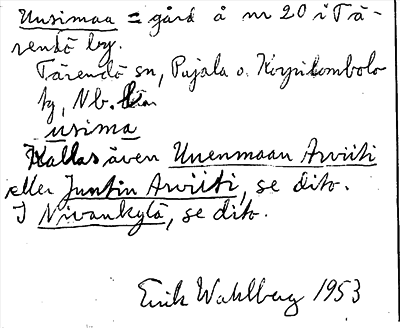 Uusimaa = gård å nr 20 i Tä-
rendö by.
Tärendö sn, Pajala o. Korpilombolo
tg, Nb. län
usima
Kallas även Unenmaan Arviiti
eller Juntin Arviiti, se dito.
I Nivankylä, se dito.
Erik Wahlberg 1953